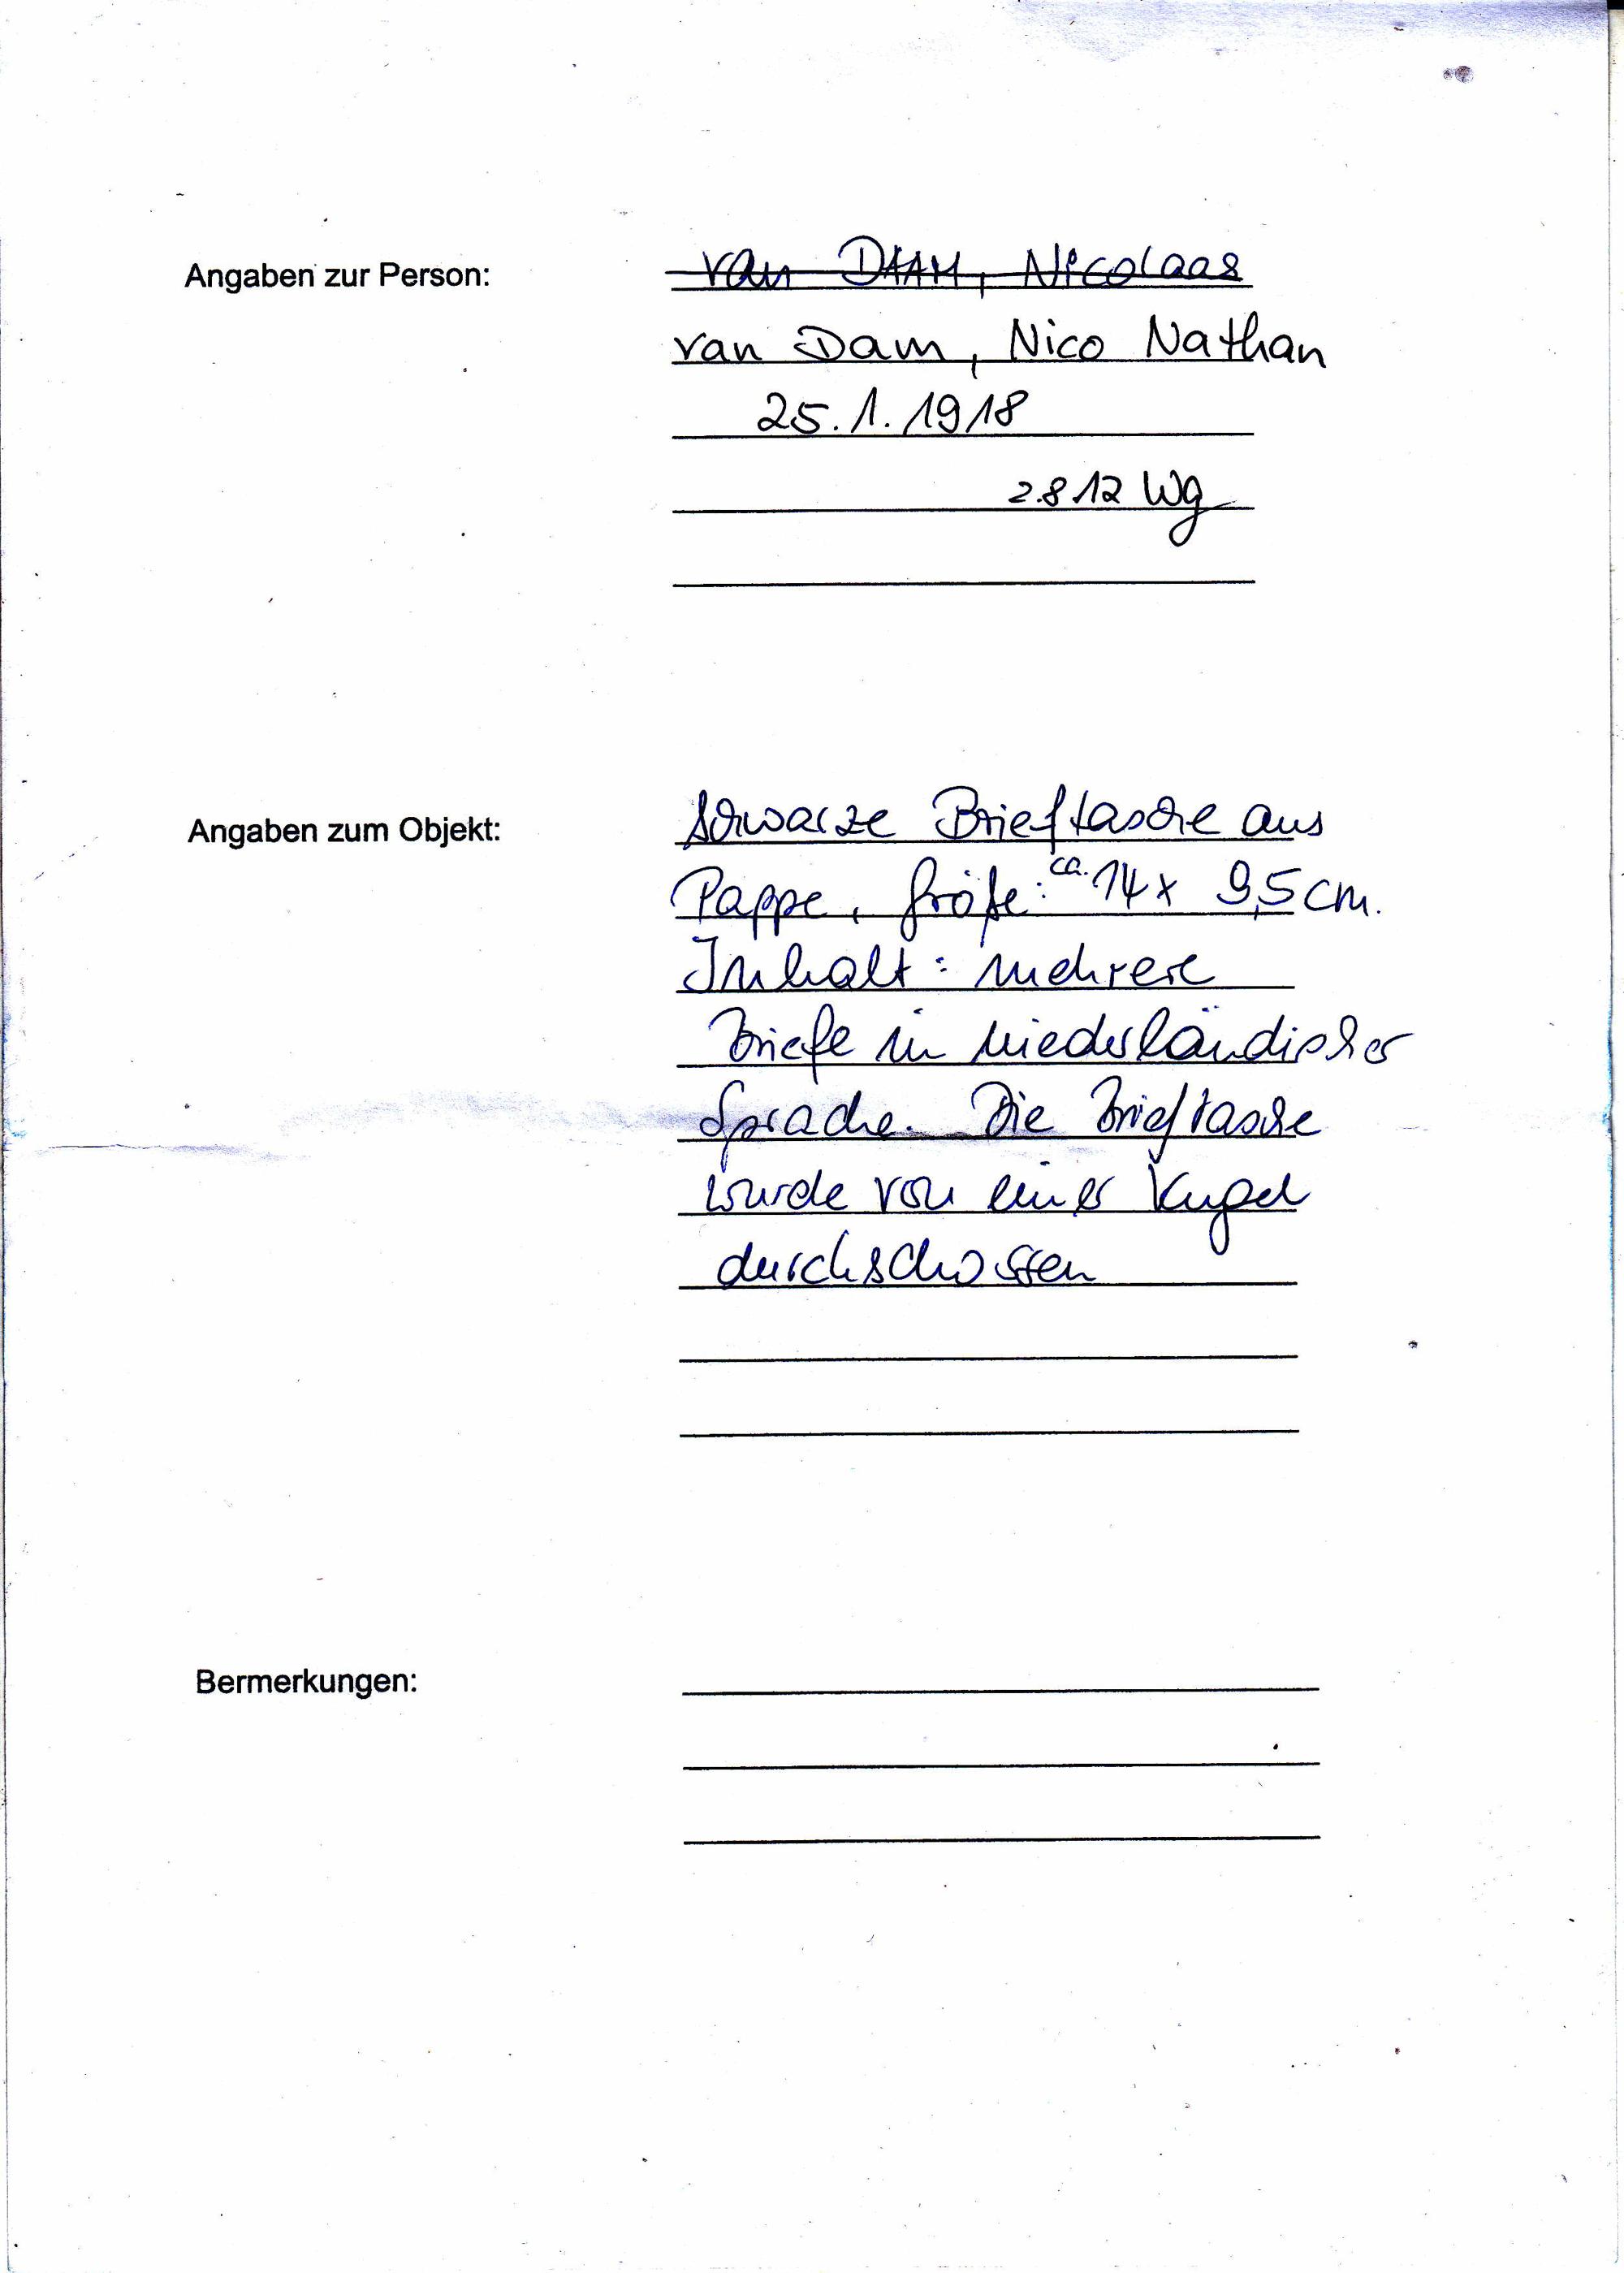 Angaben zur Person:
van DAAM, Nicolaas
van Dam, Nico Nathan
25.1.1918
2.8.12 Wg
Angaben zum Objekt:
Schwarze Brieftasche aus
Pappe, Größe: ca. 14 x 9,5 cm.
Inhalt: mehrere
Briefe in niederländischer
Sprache. Die Brieftasche
wurde von einer Kugel
durchschossen
Bermerkungen: